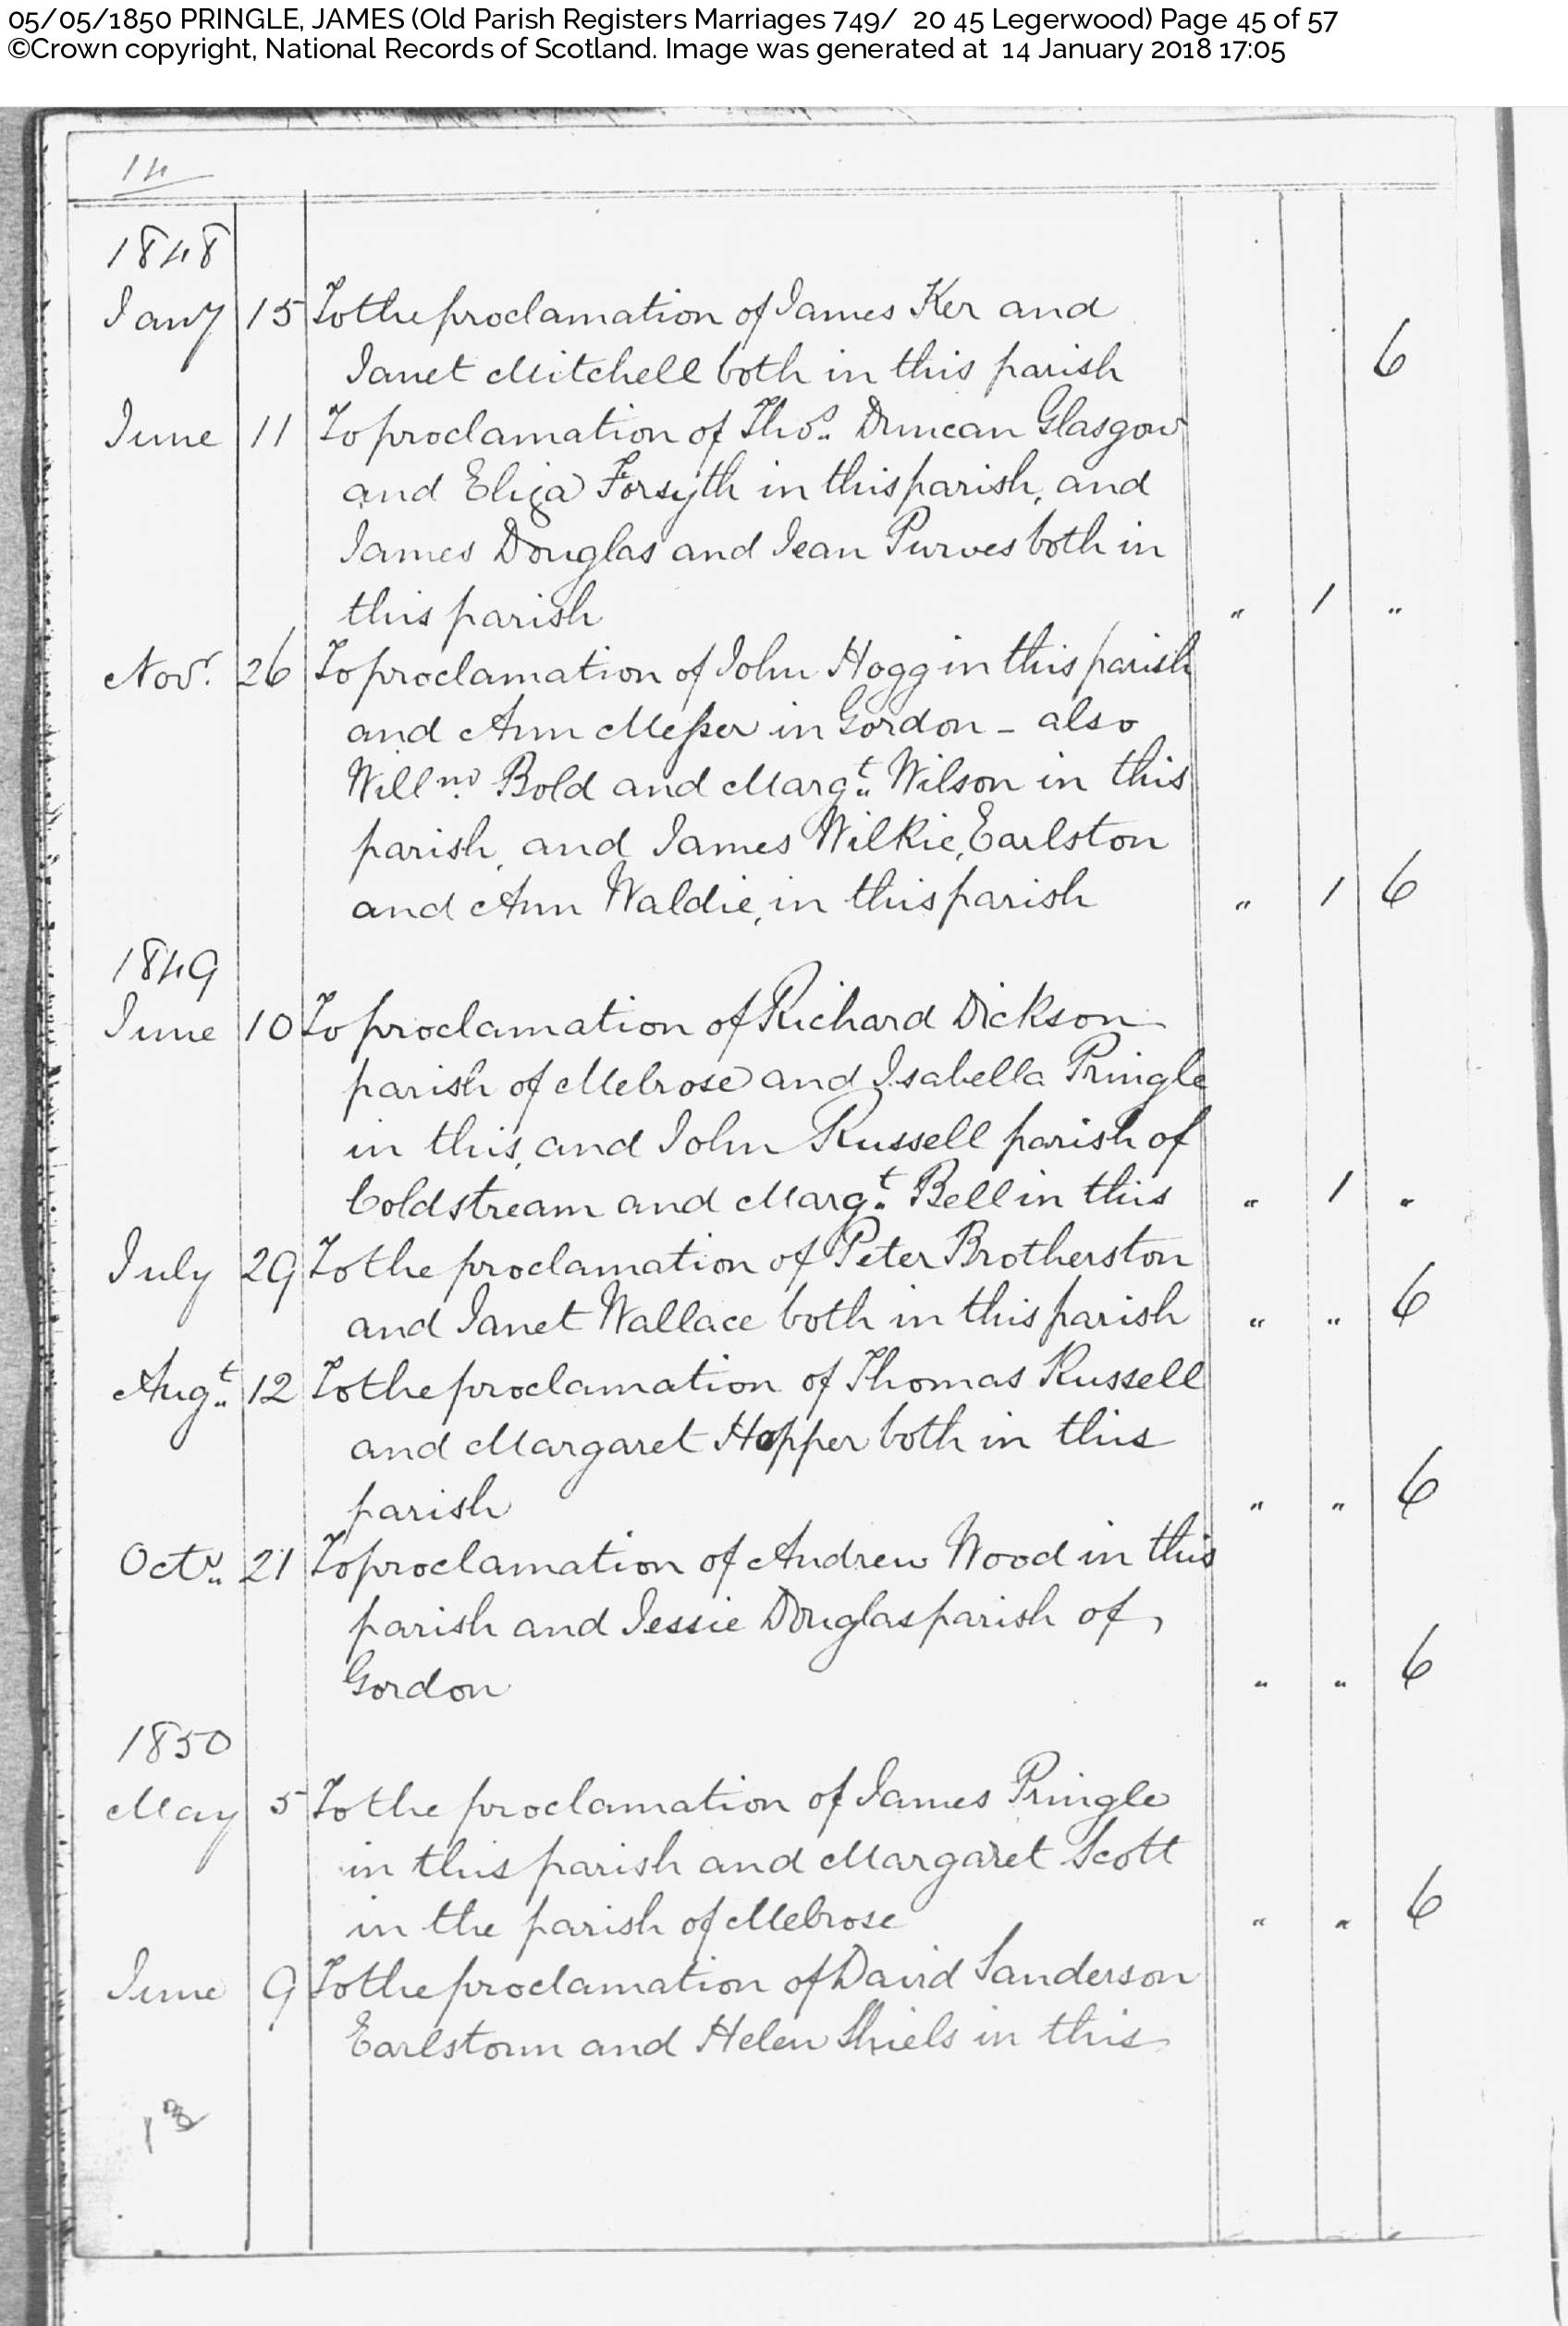 05/05/1850 PRINGLE, JAMES (Old Parish Registers Marriages 749/ 20 45 Legerwood) Page 45 of 57
©Crown copyright, National Records of Scotland. Image was generated at 14 January 2018 17:05
14
1848
Jany 15 To the proclamation of James Ker and
Janet Mitchell both in this parish 6
June 11 To proclamation of Thos. Duncan Glasgow
and Eliza Forsyth in this parish, and
James Douglas and Jean Purves both in
this parish " 1 "
Novr. 26 To proclamation of John Hogg in this parish
and Ann Messer in Gordon - also
Willm. Bold and Margt. Wilson in this
parish, and James Wilkie, Earlston
and Ann Waldie, in this parish " 1 6
1849
June 10 To proclamation of Richard Dickson
parish of Melrose and Isabella Pringle
in this, and John Russell parish of
Coldstream and Margt. Bell in this " 1 "
July 29 To the proclamation of Peter Brotherston
and Janet Wallace both in this parish " " 6
Augt. 12 To the proclamation of Thomas Russell
and Margaret Hopper both in this
parish " " 6
Octr. 21 To proclamation of Andrew Wood in this
parish and Jessie Douglas parish of
Gordon " " 6
1850
May 5 To the proclamation of James Pringle
in this parish and Margaret Scott
in the parish of Melrose " " 6
June 9 To the proclamation of David Sanderson
Earlstoun and Helen Shiels in this
13